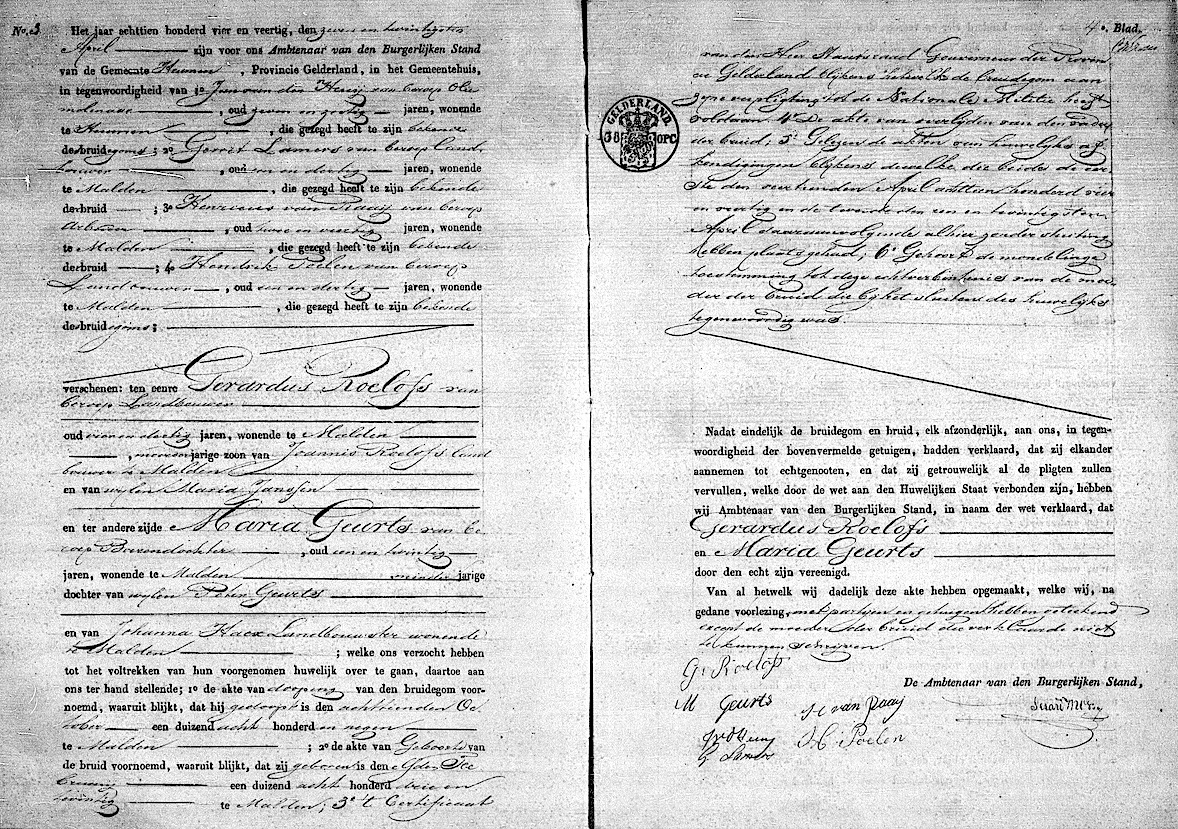 No. 3
Het jaar achttien honderd vier en veertig, den zeven en twintigsten
April zijn voor ons Ambtenaar van den Burgerlijken Stand
van de Gemeente Heumen, Provincie Gelderland, in het Gemeentehuis,
in tegenwoordigheid van 1o Jan van den Heuij van beroep Olie
molenaar, oud zeven en jaren, wonende
te Heumen, die gezegd heeft te zijn bekende
de bruidegoms; 2o Gerrit Lamers van beroep Land
bouwer, oud een en dertig jaren, wonende
te Malden, die gezegd heeft te zijn bekende
de bruid; 3o Henricus van Raaij van beroep
Arbeider, oud twee en veertig jaren, wonende
te Malden, die gezegd heeft te zijn bekende
de bruid; 4o Hendrik Poelen van beroep
Landbouwer, oud een en dertig jaren, wonende
te Malden, die gezegd heeft te zijn bekende
de bruidegoms;
verschenen: ten eenre Gerardus Roelofs van
beroep Landbouwer
oud vier en dertig jaren, wonende te Malden
, meerderjarige zoon van Joannis Roelofs land
bouwer te Malden
en van wylen Maria Janssen
en ter andere zijde Maria Geurts van be
roep Boerendochter, oud een en twintig
jaren, wonende te Malden minderjarige
dochter van wylen Peter Geurts
en van Johanna Haex Landbouwster wonende
te Malden; welke ons verzocht hebben
tot het voltrekken van hun voorgenomen huwelijk over te gaan, daartoe aan
ons ter hand stellende; 1o de akte van dooping van den bruidegom voor-
noemd, waaruit blijkt, dat hij gedoopt is den achttienden Oc
tober een duizend acht honderd en negen
te Malden; 2o de akte van Geboorte van
de bruid voornoemd, waaruit blijkt, dat zij geboren is den Fe
bruarij een duizend acht honderd drie en
twintig te Malden; 3o 't Certificaat
4e. Blad.
van den Heer Staatsraad Gouverneur der Provin
cie Gelderland blijkens hetwelk de bruidegom aan
zyne verpligting tot de Nationale Militie heeft
voldaan. 4e De akte van overlyden van den vader
der bruid; 5e Gelezen de akten van huwelyks af
kondigingen blijkens dewelke, die beide de eer
ste den veertienden April achttien honderd vier
en veertig en de tweede den een en twintigsten
April daaraanvolgende alhier zonder stuiting
hebben plaats gehad; 6e Gehoord de mondelinge
toestemming tot deze echtverbintenis van de moe
der der bruid die bij het sluiten des huwelijks
tegenwoordig was.
GELDERLAND
38 OPC
Nadat eindelijk de bruidegom en bruid, elk afzonderlijk, aan ons, in tegen-
woordigheid der bovenvermelde getuigen, hadden verklaard, dat zij elkander
aannemen tot echtgenooten, en dat zij getrouwelijk al de pligten zullen
vervullen, welke door de wet aan den Huwelijken Staat verbonden zijn, hebben
wij Ambtenaar van den Burgerlijken Stand, in naam der wet verklaard, dat
Gerardus Roelofs
en Maria Geurts
door den echt zijn vereenigd.
Van al hetwelk wij dadelijk deze akte hebben opgemaakt, welke wij, na
gedane voorlezing, met partyen en getuigen hebben geteekend
except de moeder der bruid die verklaarde niet
te kunnen schrijven.
G. Roelofs
De Ambtenaar van den Burgerlijken Stand,
M Geurts
H van Raay
H Poelen
G Lamers